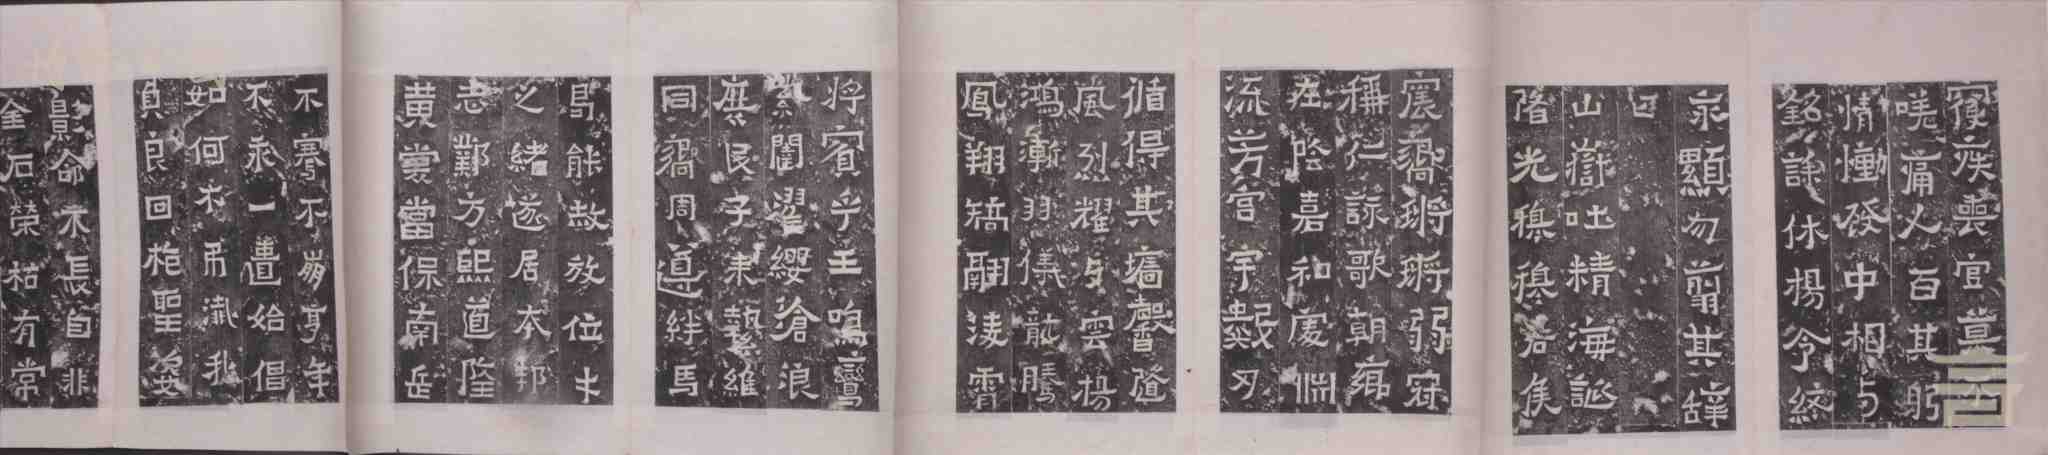 寢疾喪官莫不
嗟痛人百其躬
情慟發中相与
銘誄休揚令終
永顯勿翦其辭
曰
山嶽吐精海誕
陼光穆穆君侯
震響鏘鏘弱冠
稱仁詠歌朝鄉
在陰嘉和處淵
流芳宮宇數刃
循得其墻馨隨
風烈耀与雲揚
鴻漸羽儀龍騰
鳳翔矯翮淩霄
將賓乎王鳴鸞
紫闥濯纓滄浪
庶民子来縶維
同響周遵絆馬
曷能赦放位才
之緒遂居本邦
志鄴方熙道隆
黃裳當保南岳
不騫不崩享年
不永一匱始倡
如何不弔殲我
貞良回枹聖姿
影命不長自非
金石榮枯有常